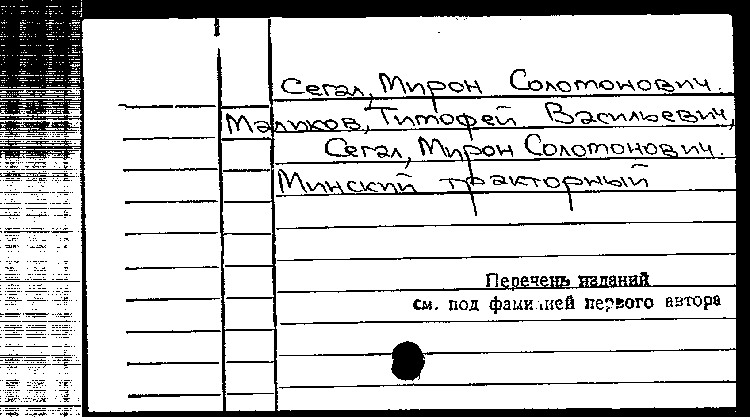 Сегал, Мирон Соломонович.
Маликов, Тимофей Васильевич,
Сегал, Мирон Соломонович.
Минский тракторный
Перечень изданий
см. под фамилией первого автора